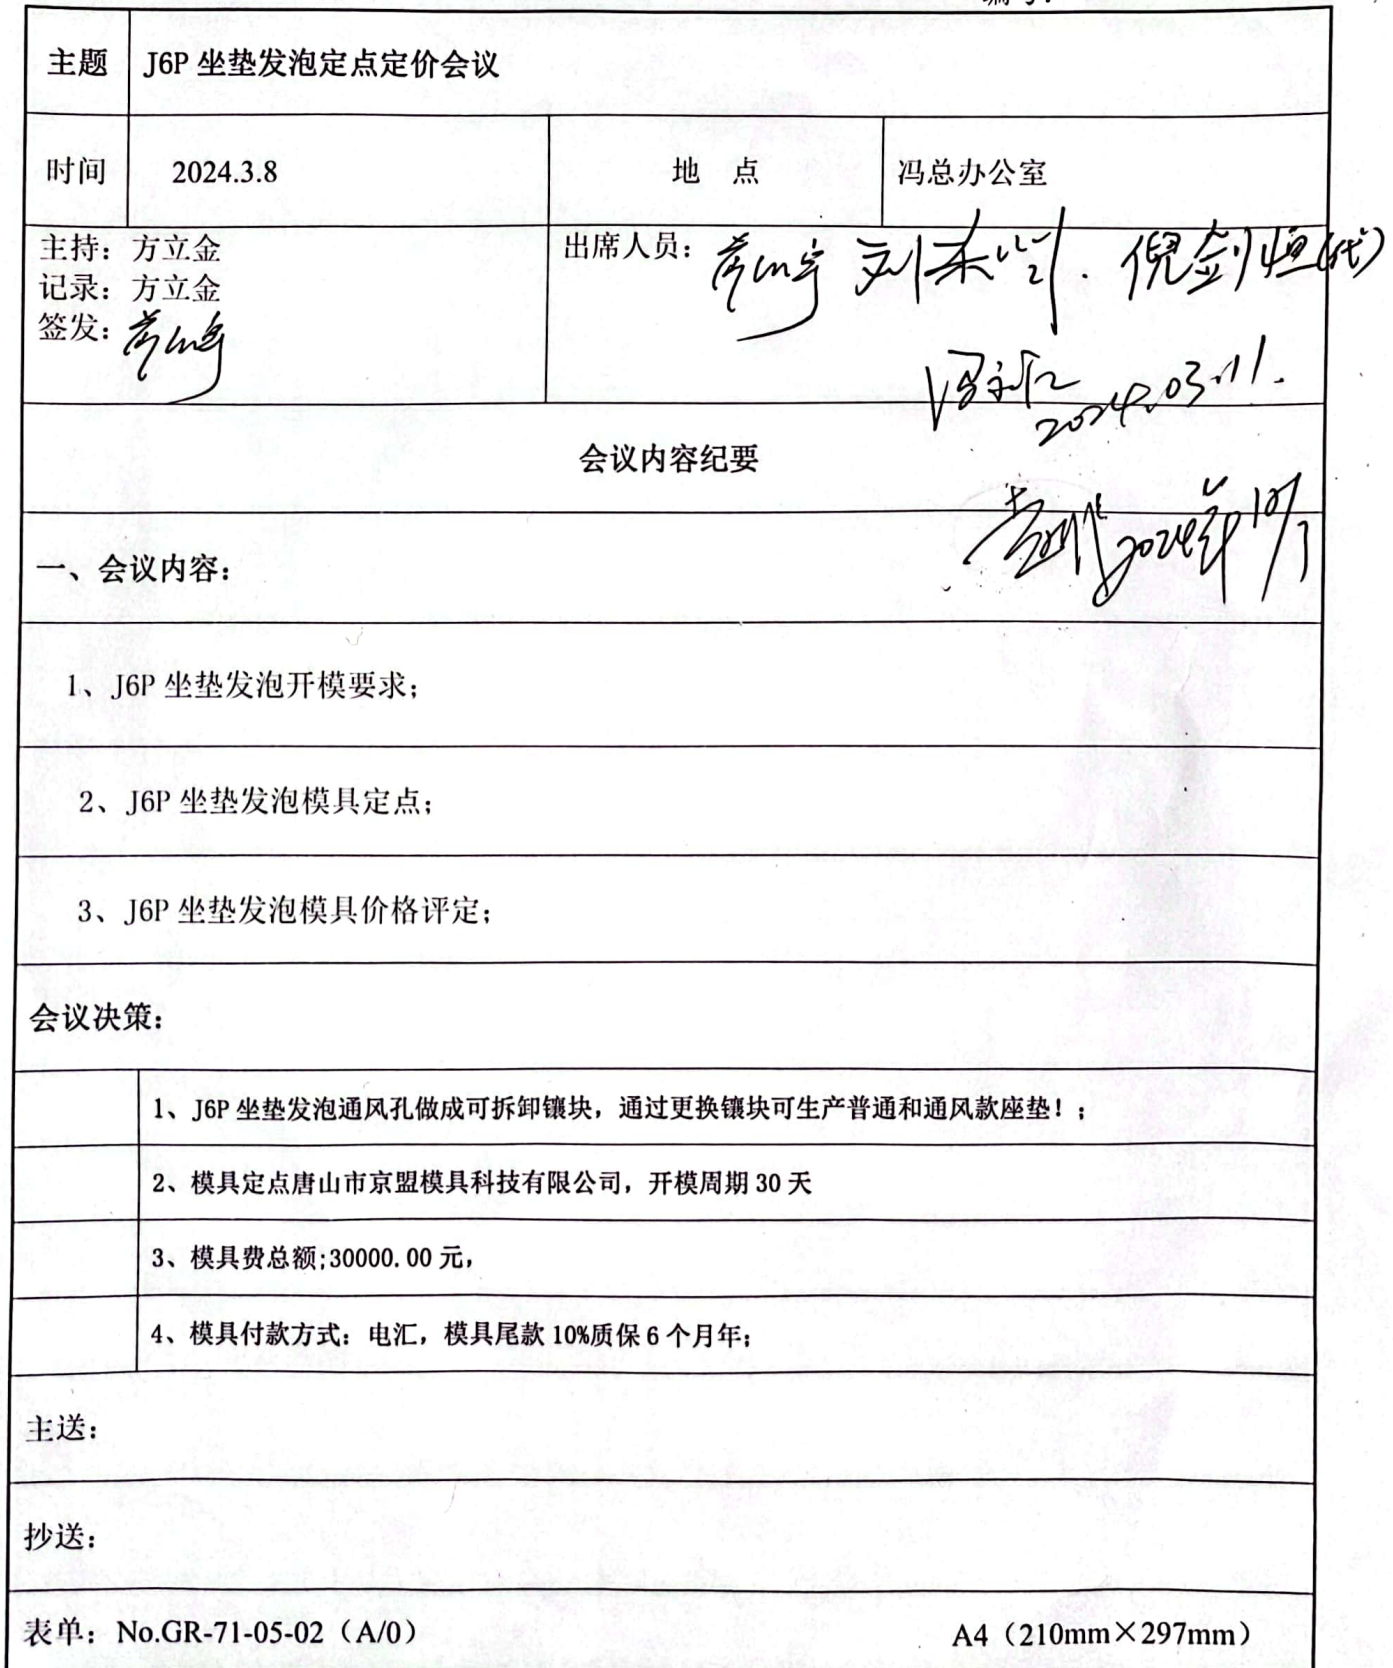 主题 J6P 坐垫发泡定点定价会议
时间 2024.3.8 地 点 冯总办公室
主持：方立金
记录：方立金
签发：
出席人员： 倪剑恒(代)
2024.03.11.
会议内容纪要
2024年
一、会议内容：
1、J6P 坐垫发泡开模要求；
2、J6P 坐垫发泡模具定点；
3、J6P 坐垫发泡模具价格评定；
会议决策：
1、J6P 坐垫发泡通风孔做成可拆卸镶块，通过更换镶块可生产普通和通风款座垫！；
2、模具定点唐山市京盟模具科技有限公司，开模周期 30 天
3、模具费总额;30000.00 元，
4、模具付款方式：电汇，模具尾款 10%质保 6 个月年；
主送：
抄送：
表单：No.GR-71-05-02（A/0） A4（210mm×297mm）